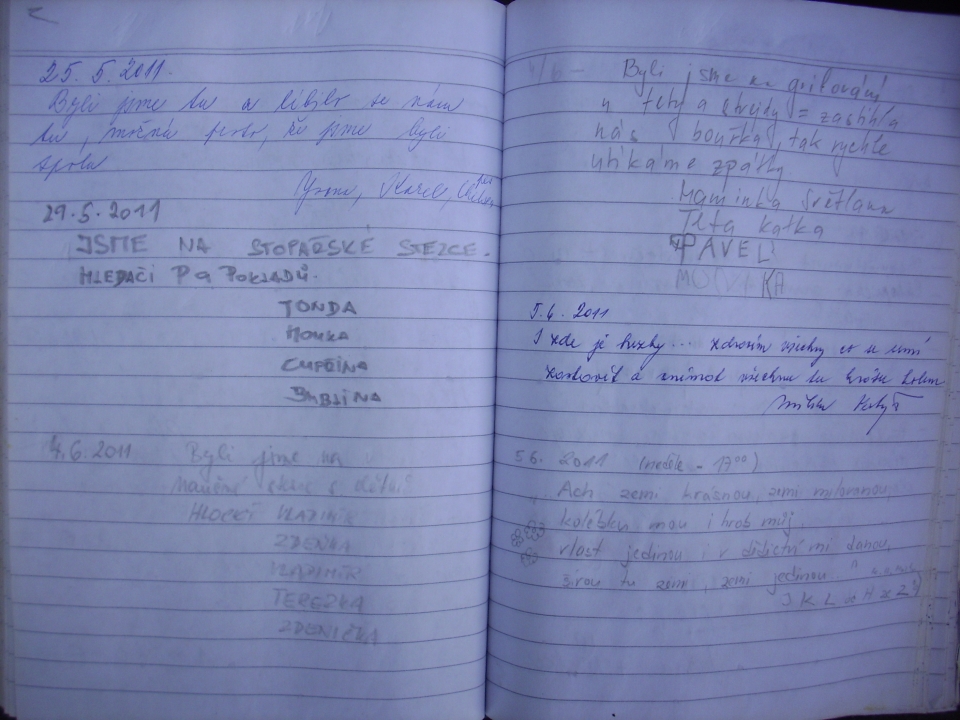 25. 5. 2011.
Byli jsme tu a líbilo se nám
tu, možná proto, že jsme byli
spolu
Karel,
29.5.2011
JSME NA STOPAŘSKÉ STEZCE.
HLEDAČI POKLADŮ.
TONDA
HONKA
BÁBLINA
4.6.2011 Byli jsme na
s dětmi
VLADIMÍR
ZDEŇKA
VLADIMÍR
TEREZKA
ZDENIČKA
Byli jsme na grilování
u tety a strejdy = zastihla
nás bouřka, tak rychle
utíkáme zpátky.
Maminka Světlana
Teta Katka
PAVEL
5.6. 2011
I zde je hezky... zdravím všechny co se umí
a vnímat všechnu tu krásu kolem
5 6. 2011 (neděle - 17⁰⁰)
Ach zemi krásnou, zemi milovanou,
kolébku mou i hrob můj,
vlast jedinou i v dědictví mi danou,
širou tu zemi, zemi jedinou."